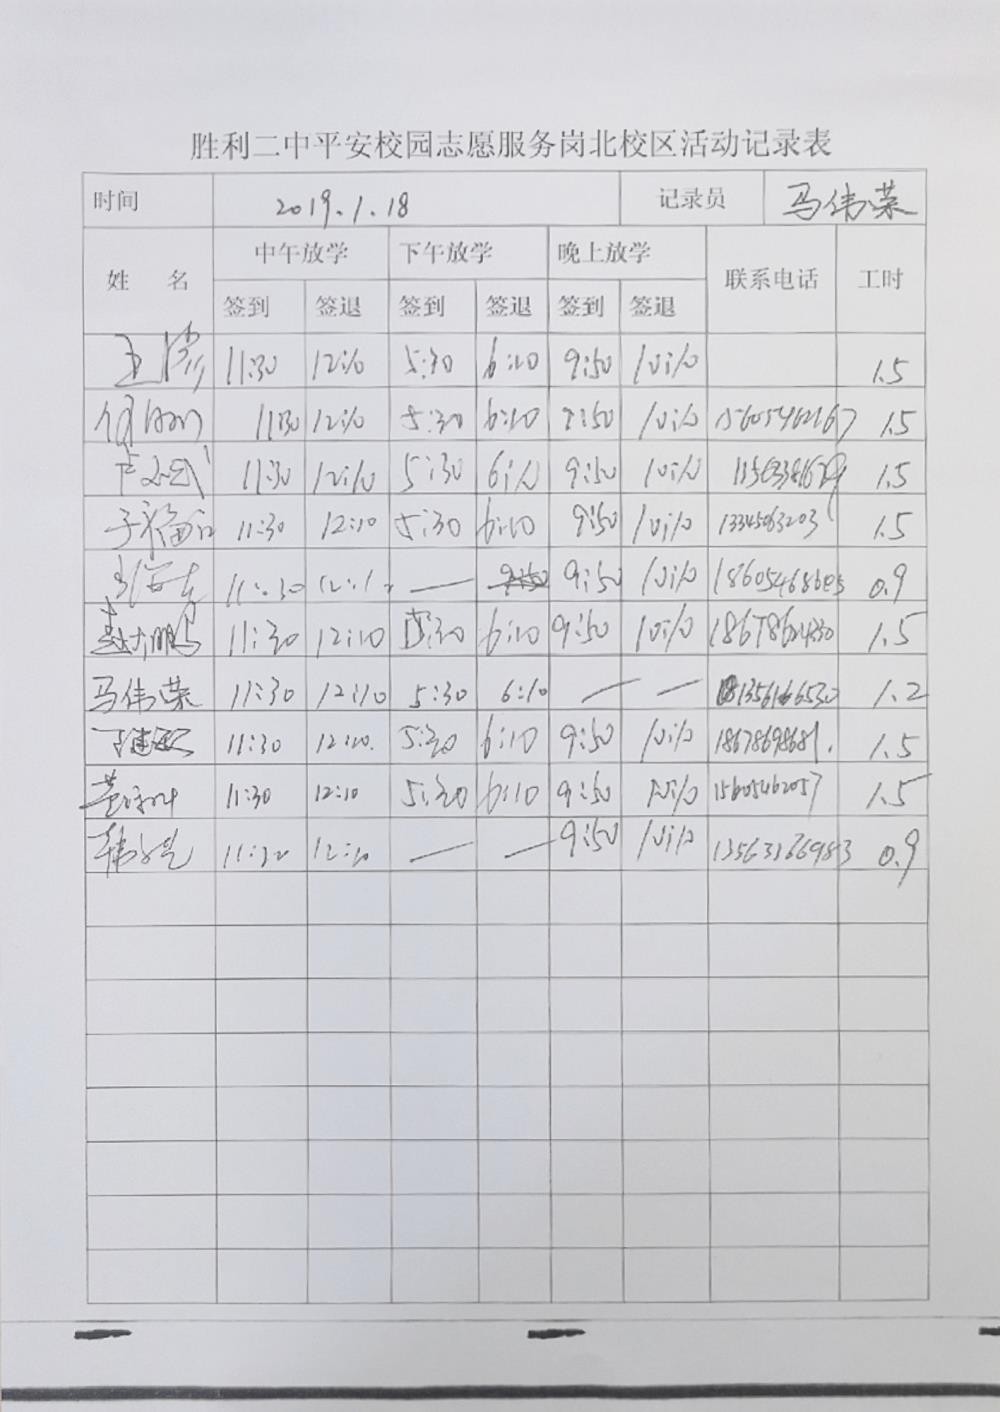 胜利二中平安校园志愿服务岗北校区活动记录表
时间 2019.1.18 记录员 马伟荣
姓 名 中午放学 下午放学 晚上放学 联系电话 工时
签到 签退 签到 签退 签到 签退
11:30 12:10 5:30 6:10 9:50 10:10 1.5
11:30 12:10 5:30 6:10 9:50 10:10 15605462167 1.5
11:30 12:10 5:30 6:10 9:50 10:10 1.5
11:30 12:10 5:30 6:10 9:50 10:10 13345063203 1.5
11:30 12:10 — 9:50 9:50 10:10 18605468605 0.9
11:30 12:10 5:30 6:10 9:50 10:10 1.5
马伟荣 11:30 12:10 5:30 6:10 — — 1.2
11:30 12:10. 5:30 6:10 9:50 10:10 18678698681. 1.5
11:30 12:10 5:30 6:10 9:50 10:10 15605462057 1.5
11:30 12:10 — — 9:50 10:10 13563366983 0.9